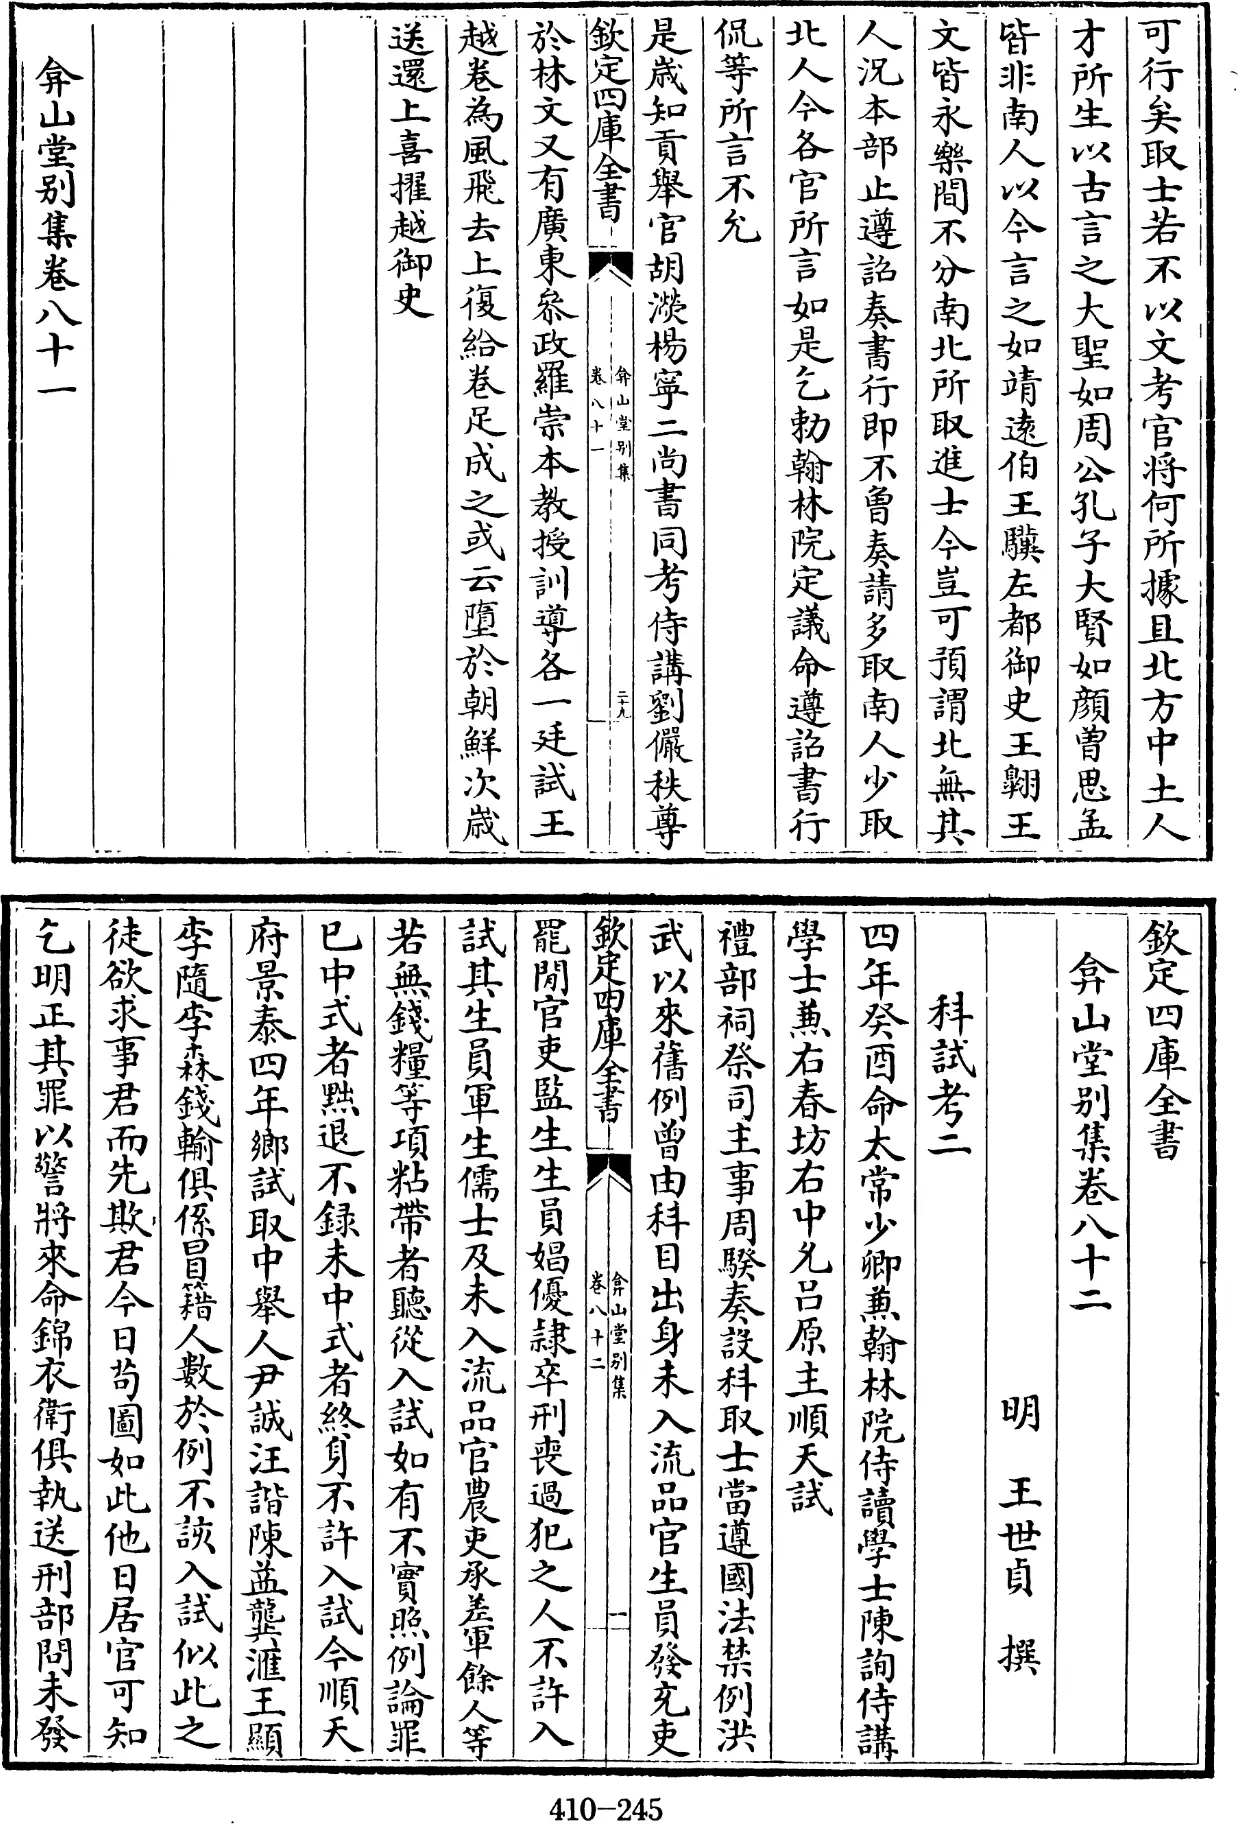 可行矣取士若不以文考官將何所據且北方中土人
才所生以古言之大聖如周公孔子大賢如顔曽思孟
皆非南人以今言之如靖逺伯王驥左都御史王翺王
文皆永樂間不分南北所取進士今豈可預謂北無其
人况本部止遵詔奏書行即不曾奏請多取南人少取
北人今各官所言如是乞勅翰林院定議命遵詔書行
侃等所言不允
是歳知貢舉官胡濙楊寧二尚書同考侍講劉儼秩尊
欽定四庫全書
弇山堂别集
卷八十一
二十九
於林文又有廣東參政羅崇本教授訓導各一廷試王
越卷為風飛去上復給卷足成之或云墮於朝鮮次歳
送還上喜擢越御史
弇山堂别集卷八十一
欽定四庫全書
弇山堂别集卷八十二
明 王世貞 撰
科試考二
四年癸酉命太常少卿兼翰林院侍讀學士陳詢侍講
學士兼右春坊右中允吕原主順天試
禮部祠祭司主事周騤奏設科取士當遵國法禁例洪
武以來舊例曽由科目出身未入流品官生員發充吏
欽定四庫全書
弇山堂别集
卷八十二
一
罷閒官吏監生生員娼優隷卒刑喪過犯之人不許入
試其生員軍生儒士及未入流品官農吏承差軍餘人等
若無錢糧等項粘帶者聽從入試如有不實照例論罪
已中式者黜退不録未中式者終身不許入試今順天
府景泰四年鄉試取中舉人尹誠汪諧陳益龔滙王顯
李隨李森錢輸俱係冒籍人數於例不該入試似此之
徒欲求事君而先欺君今日苟圖如此他日居官可知
乞明正其罪以警將來命錦衣衛俱執送刑部問未發
410-245